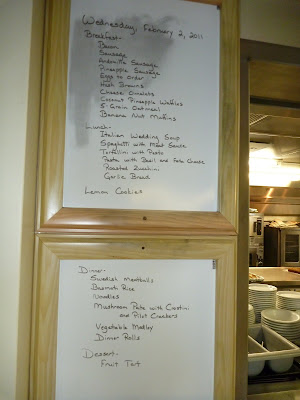 Wednesday, February 2, 2011
Breakfast-
Bacon
Sausage
Andouille Sausage
Pineapple Sausage
Eggs to Order
Hash Browns
Cheese Omelets
Coconut Pineapple Waffles
5-Grain Oatmeal
Banana Nut Muffins
Lunch-
Italian Wedding Soup
Spaghetti with Meat Sauce
Tortellini with Pesto
Pasta with Basil and Feta Cheese
Roasted Zucchini
Garlic Bread
Lemon Cookies
Dinner-
Swedish Meatballs
Basmati Rice
Noodles
Mushroom Pate with Crostini
and Pilot Crackers
Vegetable Medley
Dinner Rolls
Dessert-
Fruit Tart